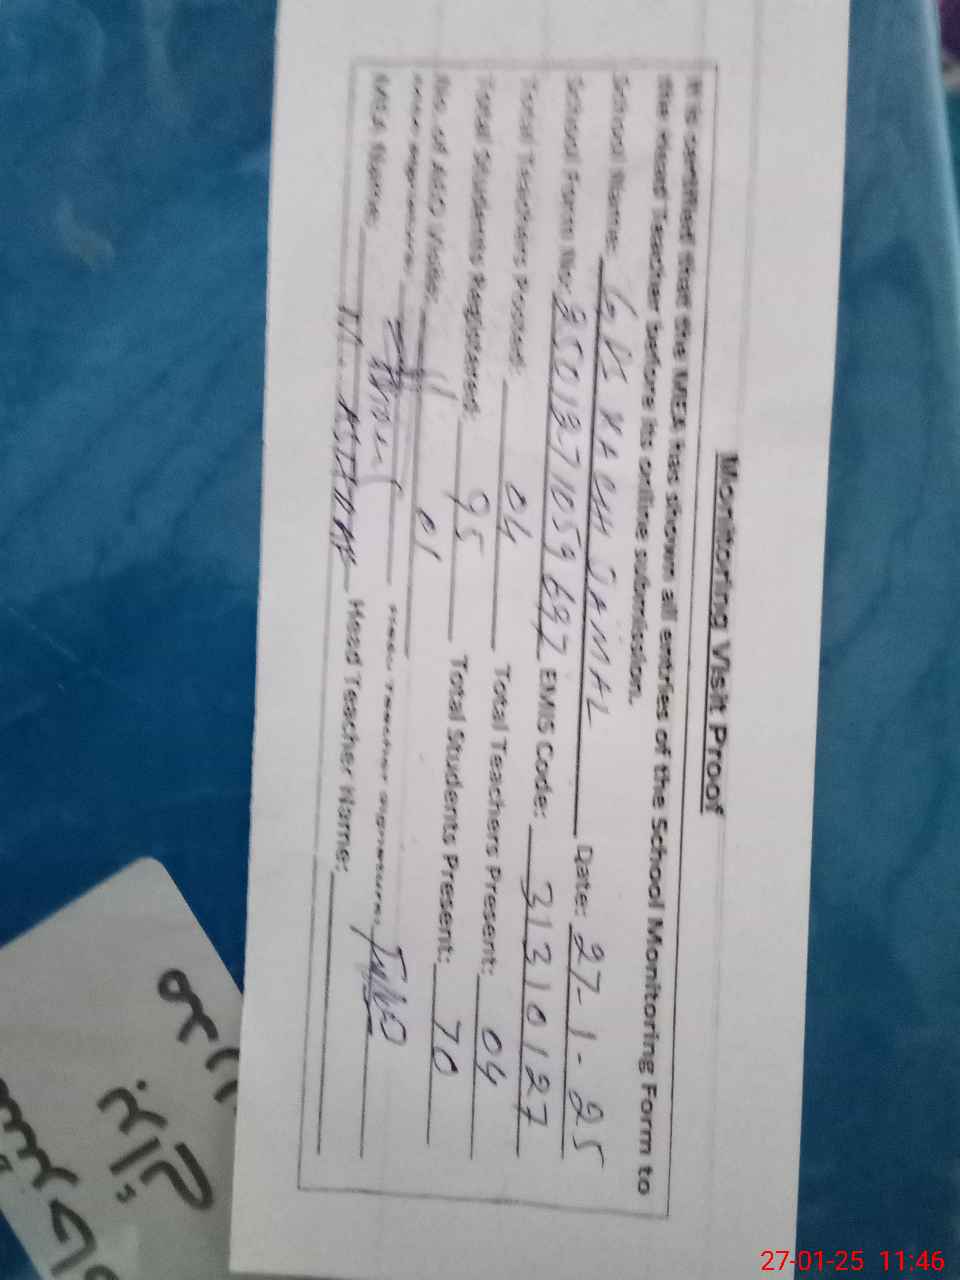 Monitoring Visit Proof
It is certified that the MEA has shown all entries of the School Monitoring Form to
the Head Teacher before its online submission.
School Name: GPS KACHI JAMAL Date: 27-1-25
School Form No: EMIS Code: 31310127
Total Teachers Posted: 04 Total Teachers Present: 04
Total Students Registered: 95 Total Students Present: 70
No. of AEO Visits: 01
MEA Signature: Head Teacher Signature:
MEA Name: Head Teacher Name:
27-01-25 11:46